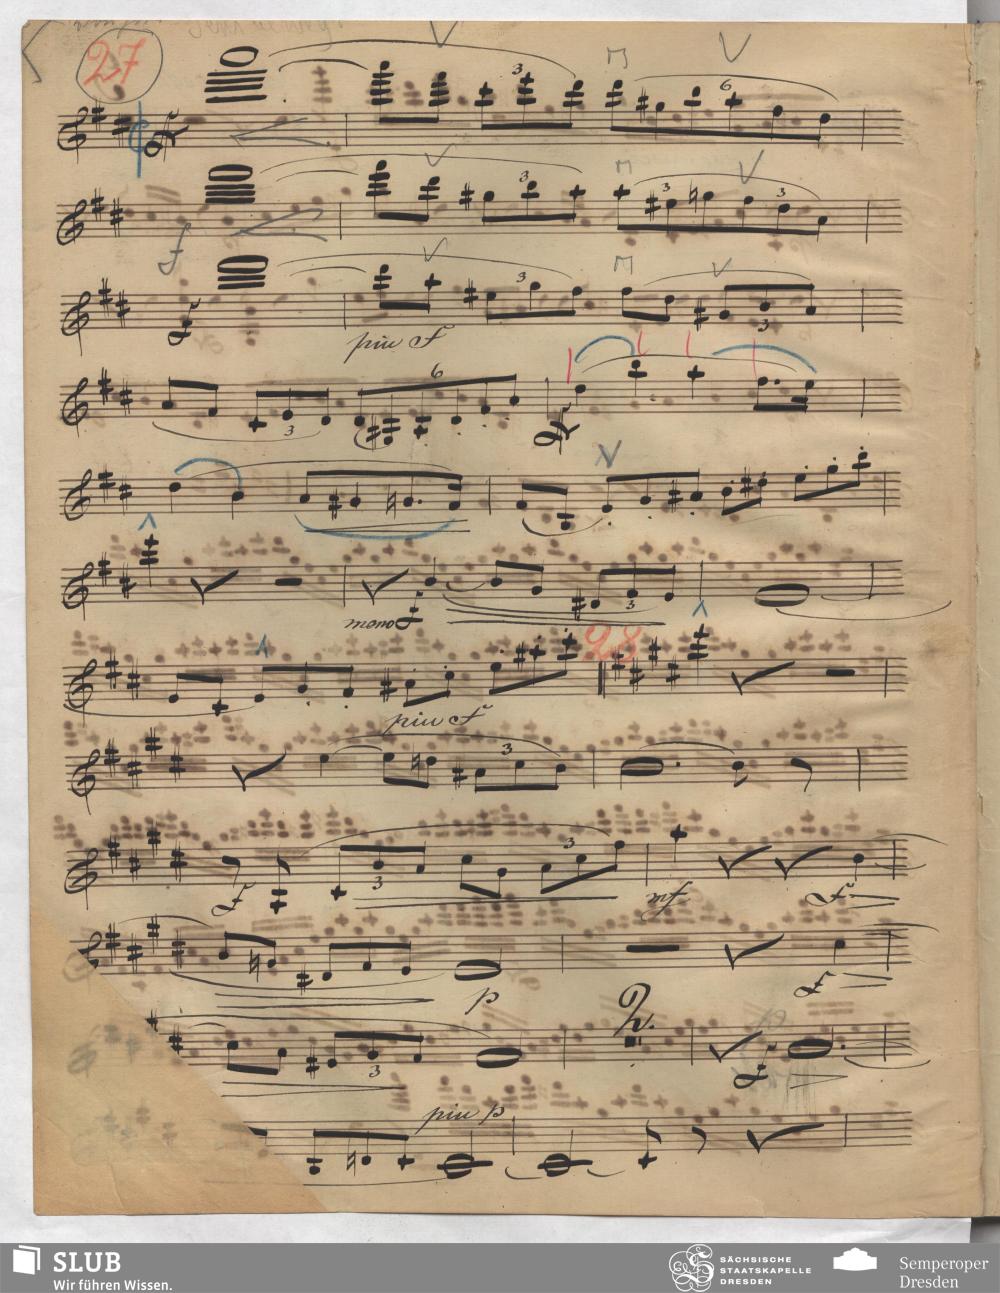 27
3
6
3
3
3
f
3
3
f
piu f
6
3
meno f
3
28
piu f
3
3
3
f
mf
f
p
f
2.
3
f
piu p
SLUB
Wir führen Wissen.
SÄCHSISCHE
STAATSKAPELLE
DRESDEN
Semperoper
Dresden